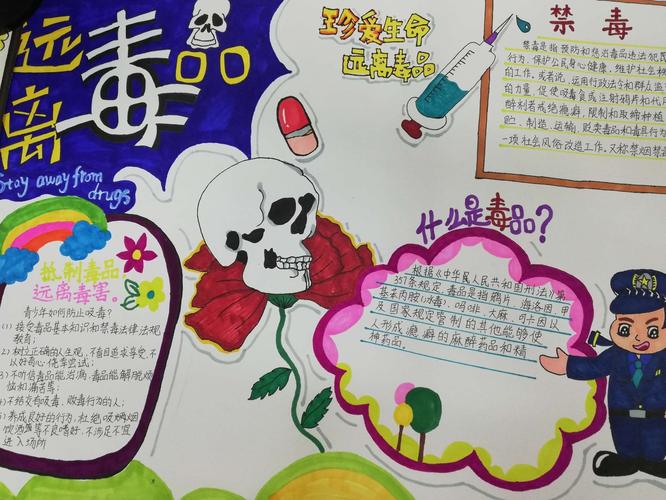 远离毒品
Stay away from
drugs
珍爱生命
远离毒品
禁毒
禁毒是指预防和惩治毒品违法犯
行为,保护公民身心健康,维护社会
的工作。或者说,运用行政法令和群
的力量,促使吸食或注射鸦片和代
醉剂者戒绝瘾癖,限制和取缔种植
贮、制造、运输、贩卖毒品和毒具行
一项社会风俗改造工作。又称禁烟禁
抵制毒品,
远离毒害。
青少年如何防止吸毒?
(1)接受毒品基本知识和禁毒法律法规
教育;
2)树立正确的人生观,不盲目追求享受,不
以好奇心,侥幸尝试;
3)不听信毒品能治病,毒品能解脱烦
恼和痛苦等;
4)不结交有吸毒、贩毒行为的人;
5)养成良好的行为,杜绝吸烟
饮酒等不良嗜好,不涉足不宜
进入场所
什么是毒品?
根据《中华人民共和国刑法》第
357条规定,毒品是指鸦片、海洛因、甲
基苯丙胺(冰毒)、吗啡、大麻、可卡因以
及国家规定管制的其他能够使
人形成瘾癖的麻醉药品和精
神药品。